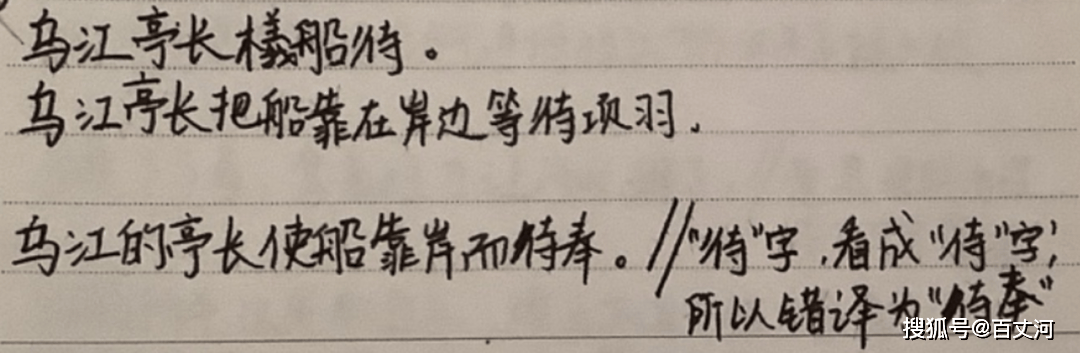 乌江亭长檥船待。
乌江亭长把船靠在岸边等待项羽。
乌江的亭长使船靠岸而侍奉。//"待"字,看成"侍"字,
所以错译为"侍奉"
搜狐号@百丈河